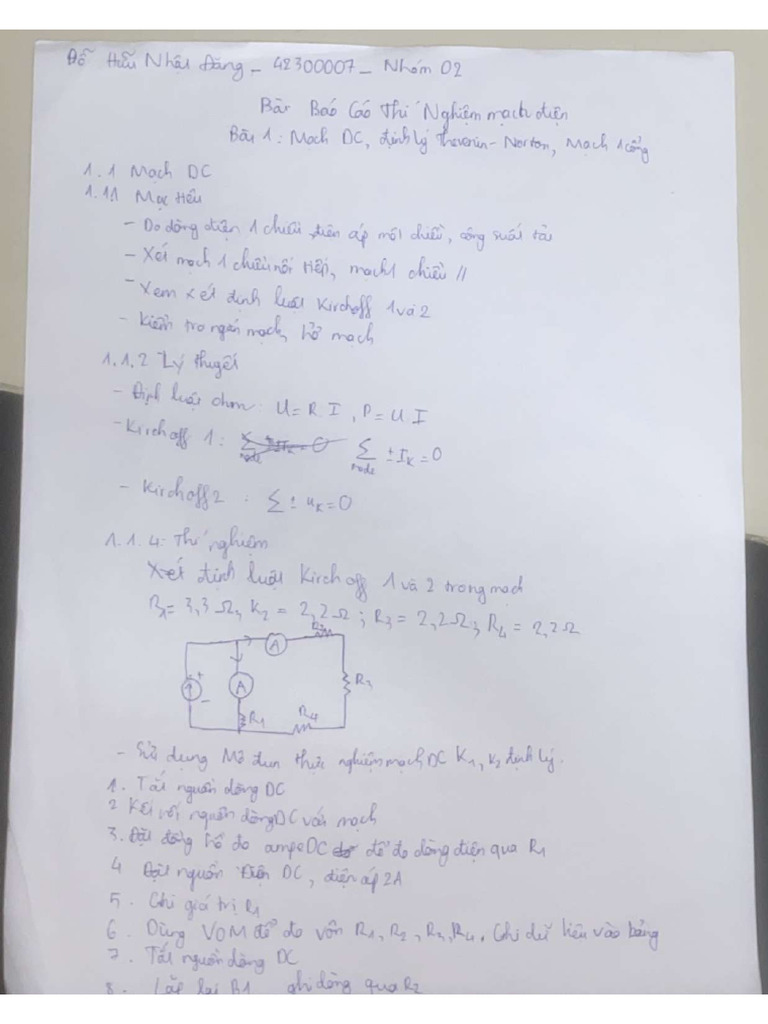 Đỗ Hữu Nhật Đăng - 42300007 - Nhóm 02
Bài Báo Cáo Thí Nghiệm mạch điện
Bài 1: Mạch DC, định lý Thevenin - Norton, Mạch 1 cổng
1.1 Mạch DC
1.1.1 Mục tiêu
- Đo dòng điện 1 chiều, điện áp một chiều, công suất tải
- Xét mạch 1 chiều nối tiếp, mạch 1 chiều //
- Xem xét định luật Kirchoff 1 và 2
- Kiểm tra ngắn mạch, hở mạch
1.1.2 Lý thuyết
- Định luật ohm: U = R I, P = U I
- Kirchoff 1: Σ ± I_K = 0
node
- Kirchoff 2: Σ ± u_K = 0
1.1.4: Thí nghiệm
Xét định luật Kirchoff 1 và 2 trong mạch
R1 = 3,3 Ω, R2 = 2,2 Ω; R3 = 2,2 Ω, R4 = 2,2 Ω
R2
A
+
A
R3
-
R1
R4
- Sử dụng Mô đun thực nghiệm mạch DC K1, K2 định lý.
1. Tắt nguồn dòng DC
2 Kết nối nguồn dòng DC với mạch
3. Đặt đồng hồ đo ampe DC để đo dòng điện qua R1
4 Đặt nguồn Điện DC, điện áp 2A
5. Ghi giá trị R1
6. Dùng VOM để đo vôn R1, R2, R3, R4. Ghi dữ liệu vào bảng
7. Tắt nguồn dòng DC
8. Lắp lại R1 ghi dòng qua R2